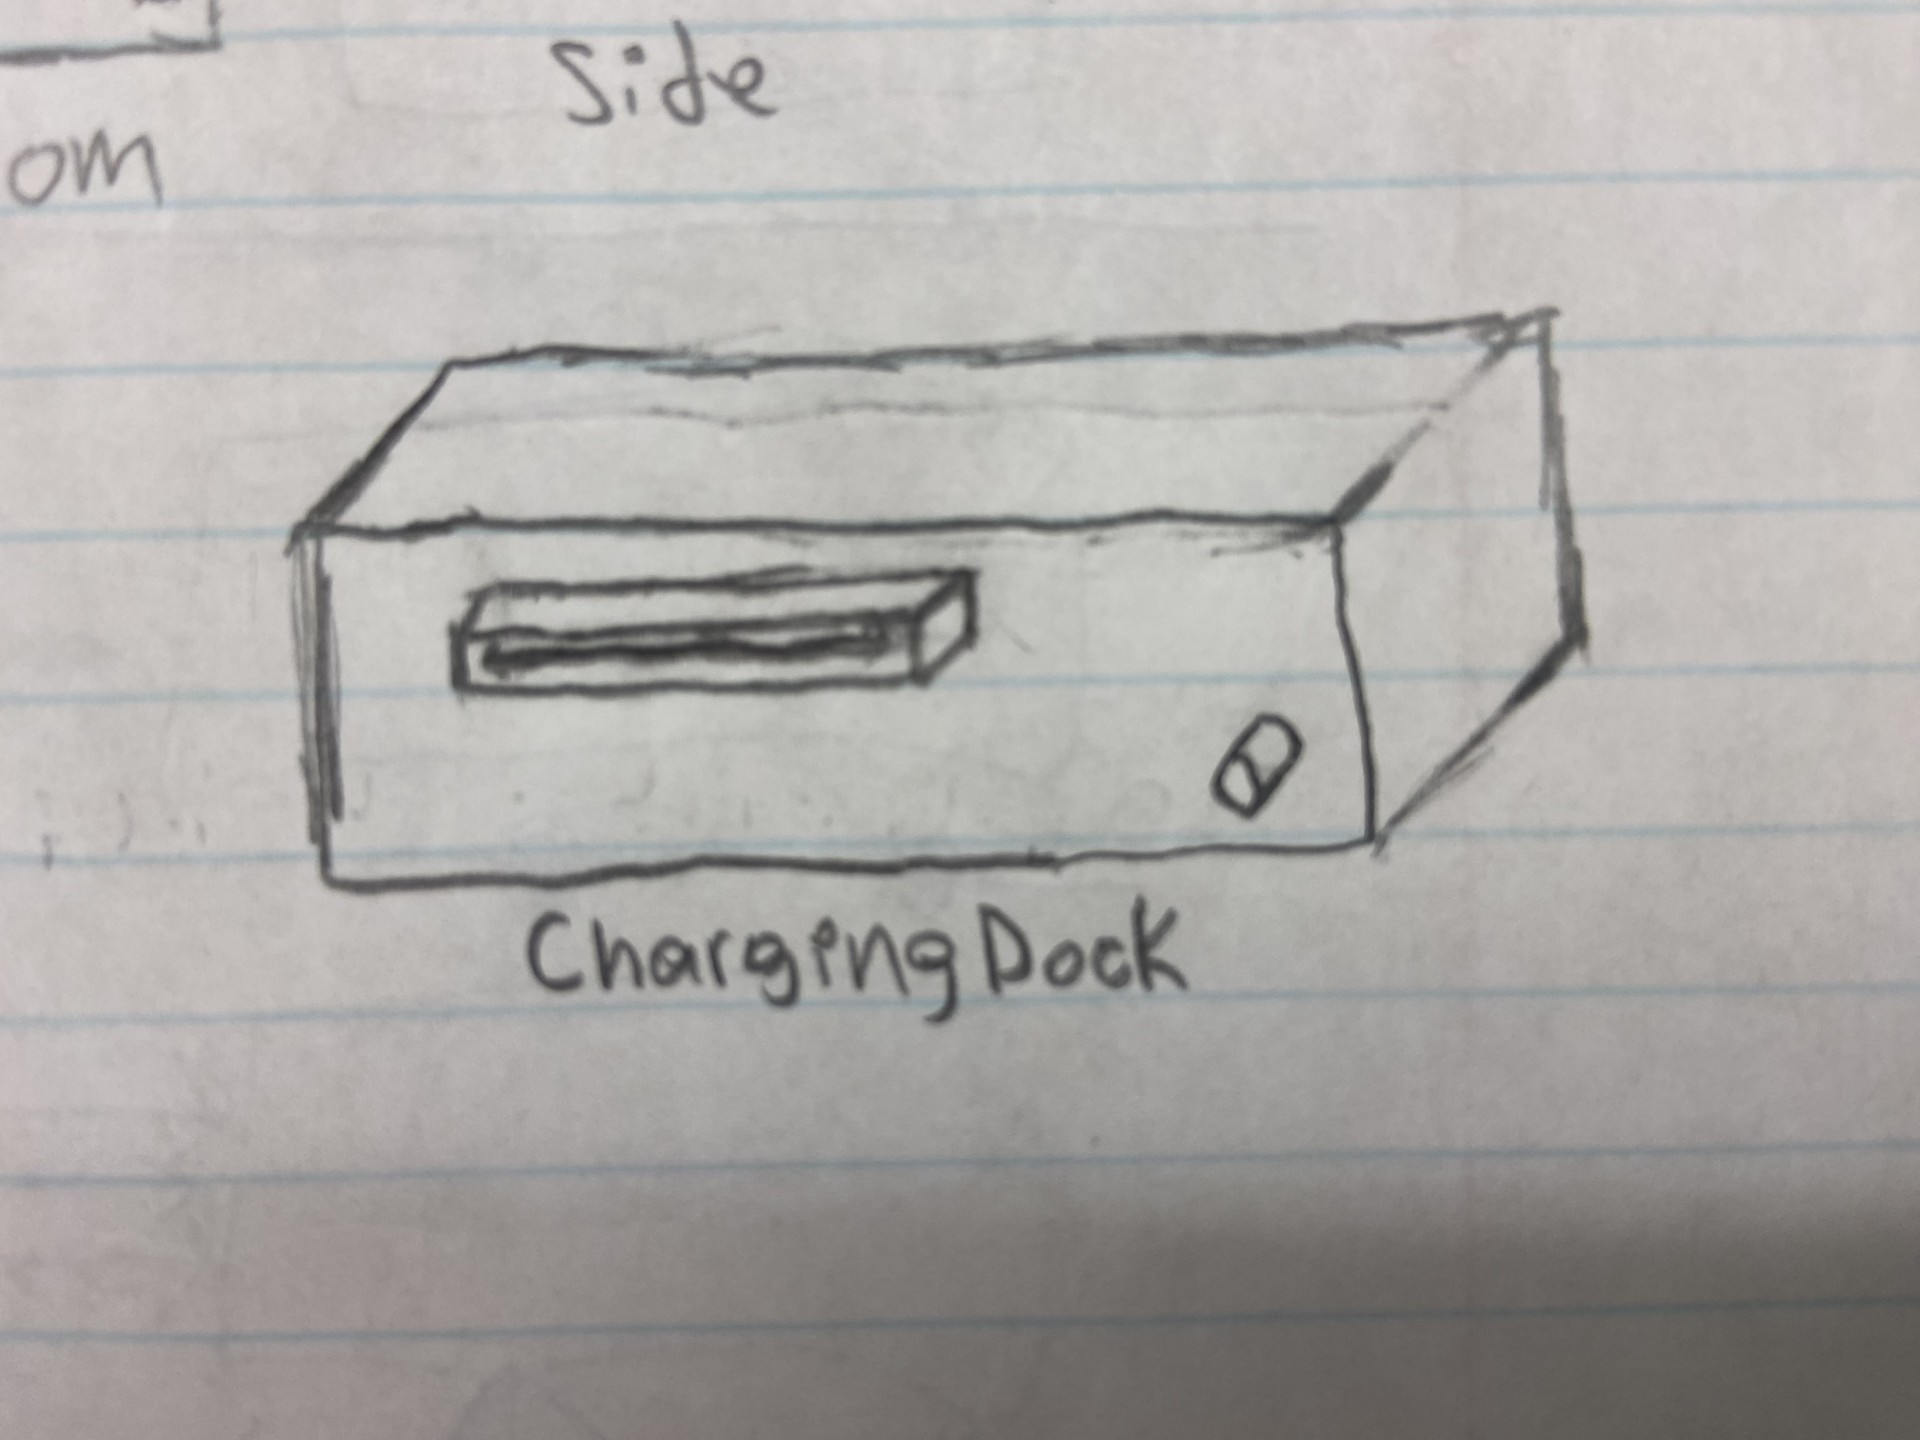 Side
om
Charging Dock